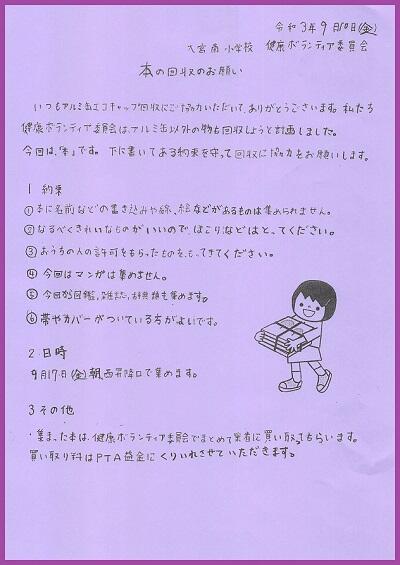 令和3年9月10日(金)
大宮南小学校 健康ボランティア委員会
本の回収のお願い
いつもアルミ缶エコキャップ回収にご協力いただいて、ありがとうございます。私たち
健康ボランティア委員会は、アルミ缶以外の物も回収しようと計画しました。
今回は、「本」です。下に書いてある約束を守って回収に協力をお願いします。
1 約束
①本に名前などの書き込みや線、絵などがあるものは集められません。
②なるべくきれいなものがいいので、ほこりなどはとってください。
③おうちの人の許可をもらったものをもってきてください。
④今回はマンガは集めません。
⑤今回は図鑑、雑誌、辞典類も集めます。
⑥帯やカバーがついている方がよいです。
2 日時
9月17日(金)朝、西昇降口で集めます。
3 その他
・集まった本は、健康ボランティア委員会でまとめて業者に買い取ってもらいます。
買い取り料はPTA益金にくりいれさせていただきます。